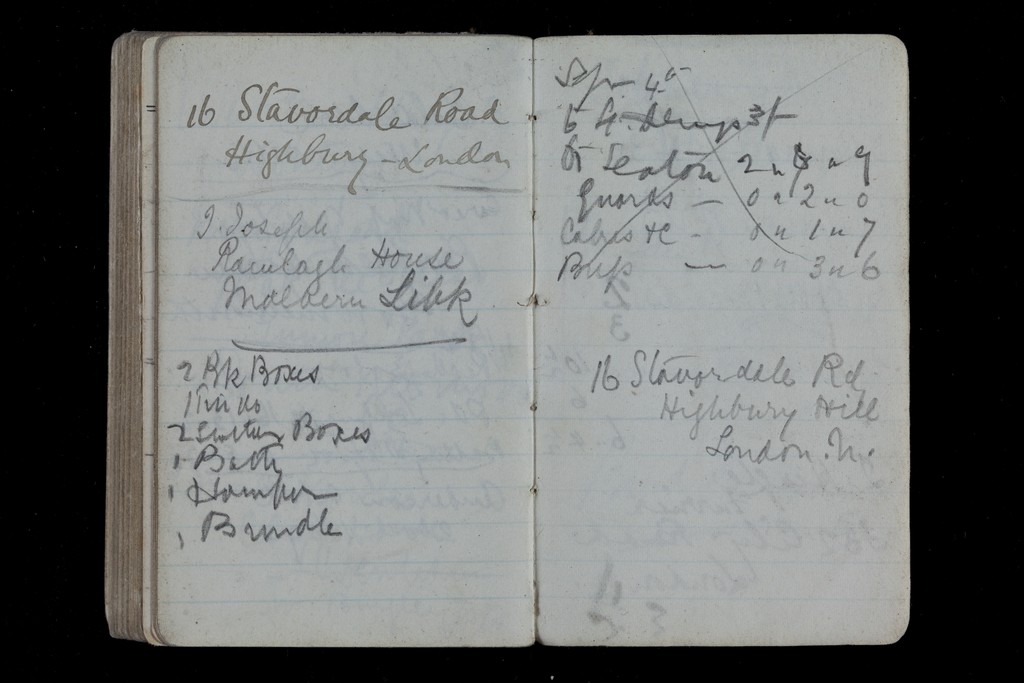 16 Stavordale Road
Highbury - London
J. Joseph
Ranelagh House
Malvern Link
2 Bk Boxes
1 Tin do
2 Boxes
1 Bath
1 Hamper
1, Bundle
4
Seaton 2 " 8 " 9
Guards — 0 " 2 " 0
Cabs &c - 0 " 1 " 7
— 0 " 3 " 6
2
3
16 Stavordale Rd
Highbury Hill
London. N.